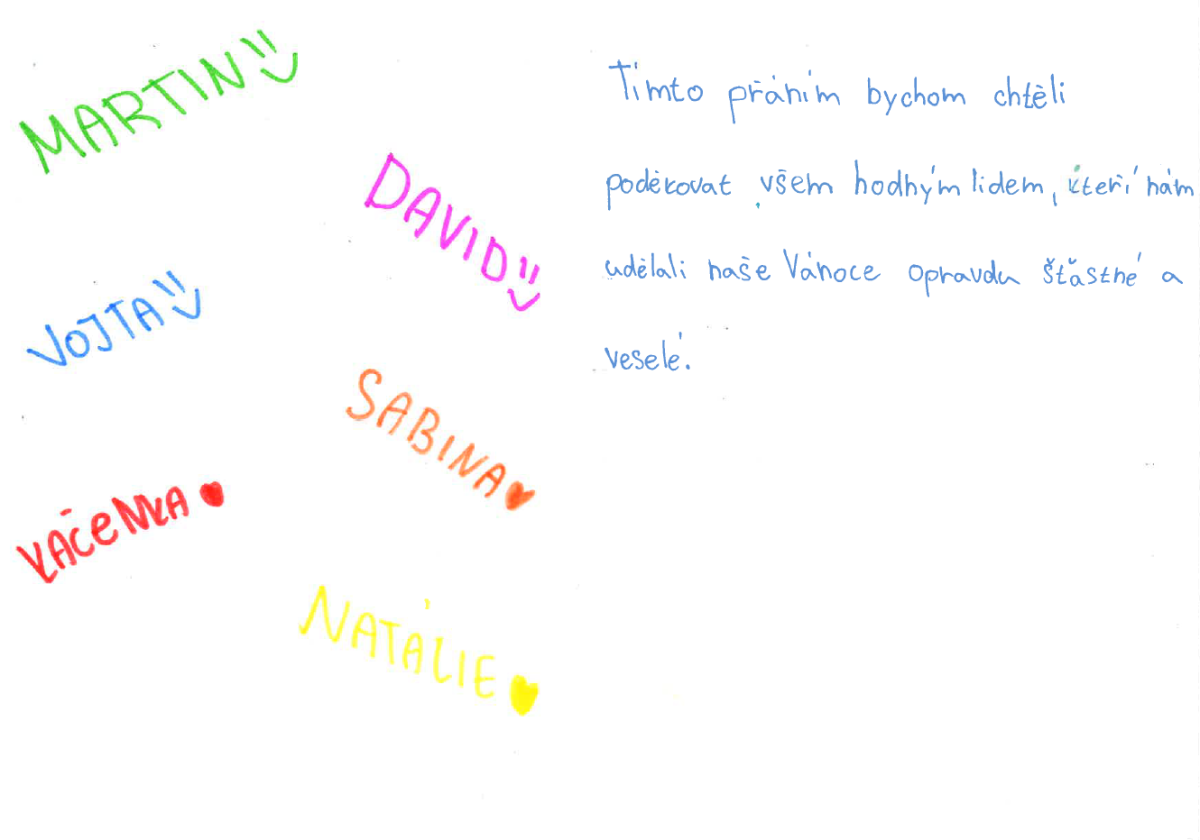 MARTIN
DAVID
VOJTA
SABINA
KÁČENKA
NATÁLIE
Tímto přáním bychom chtěli
poděkovat všem hodným lidem, kteří nám
udělali naše Vánoce opravdu šťastné a
veselé.